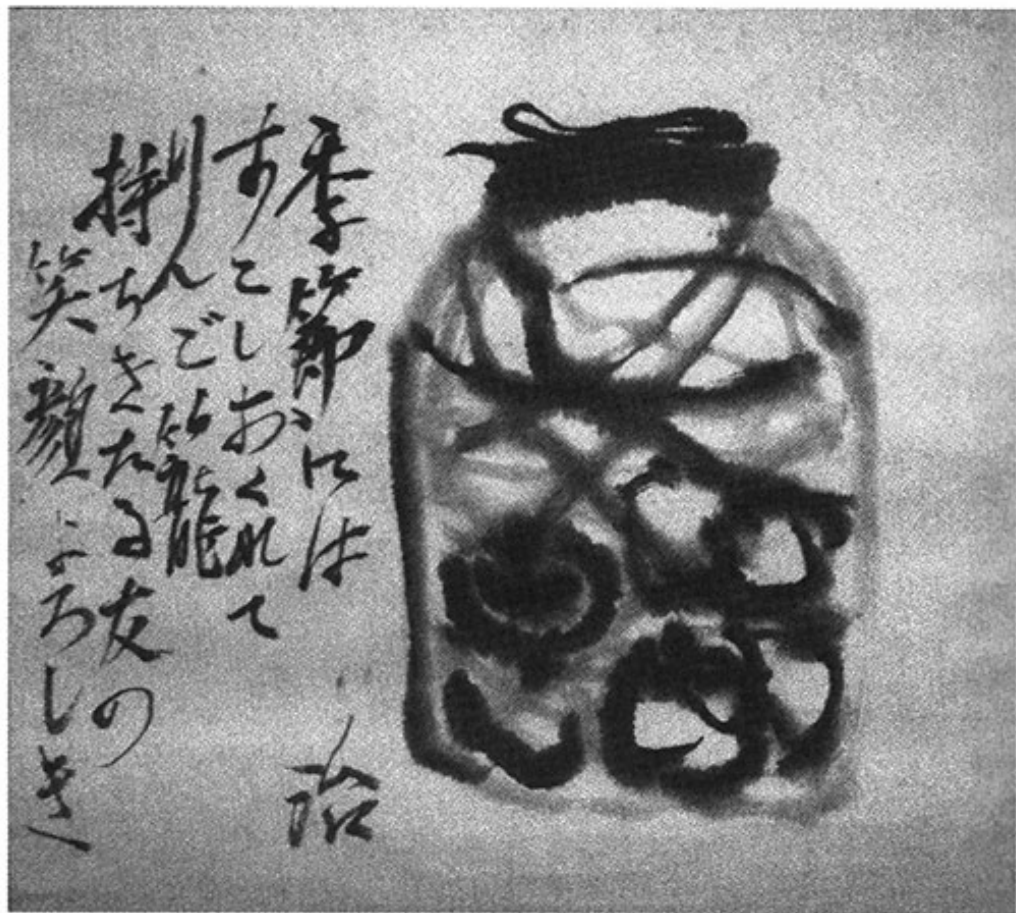 季節には
すこしおくれて
りんご籠
持ちきたる友の
笑顔よろしき
治